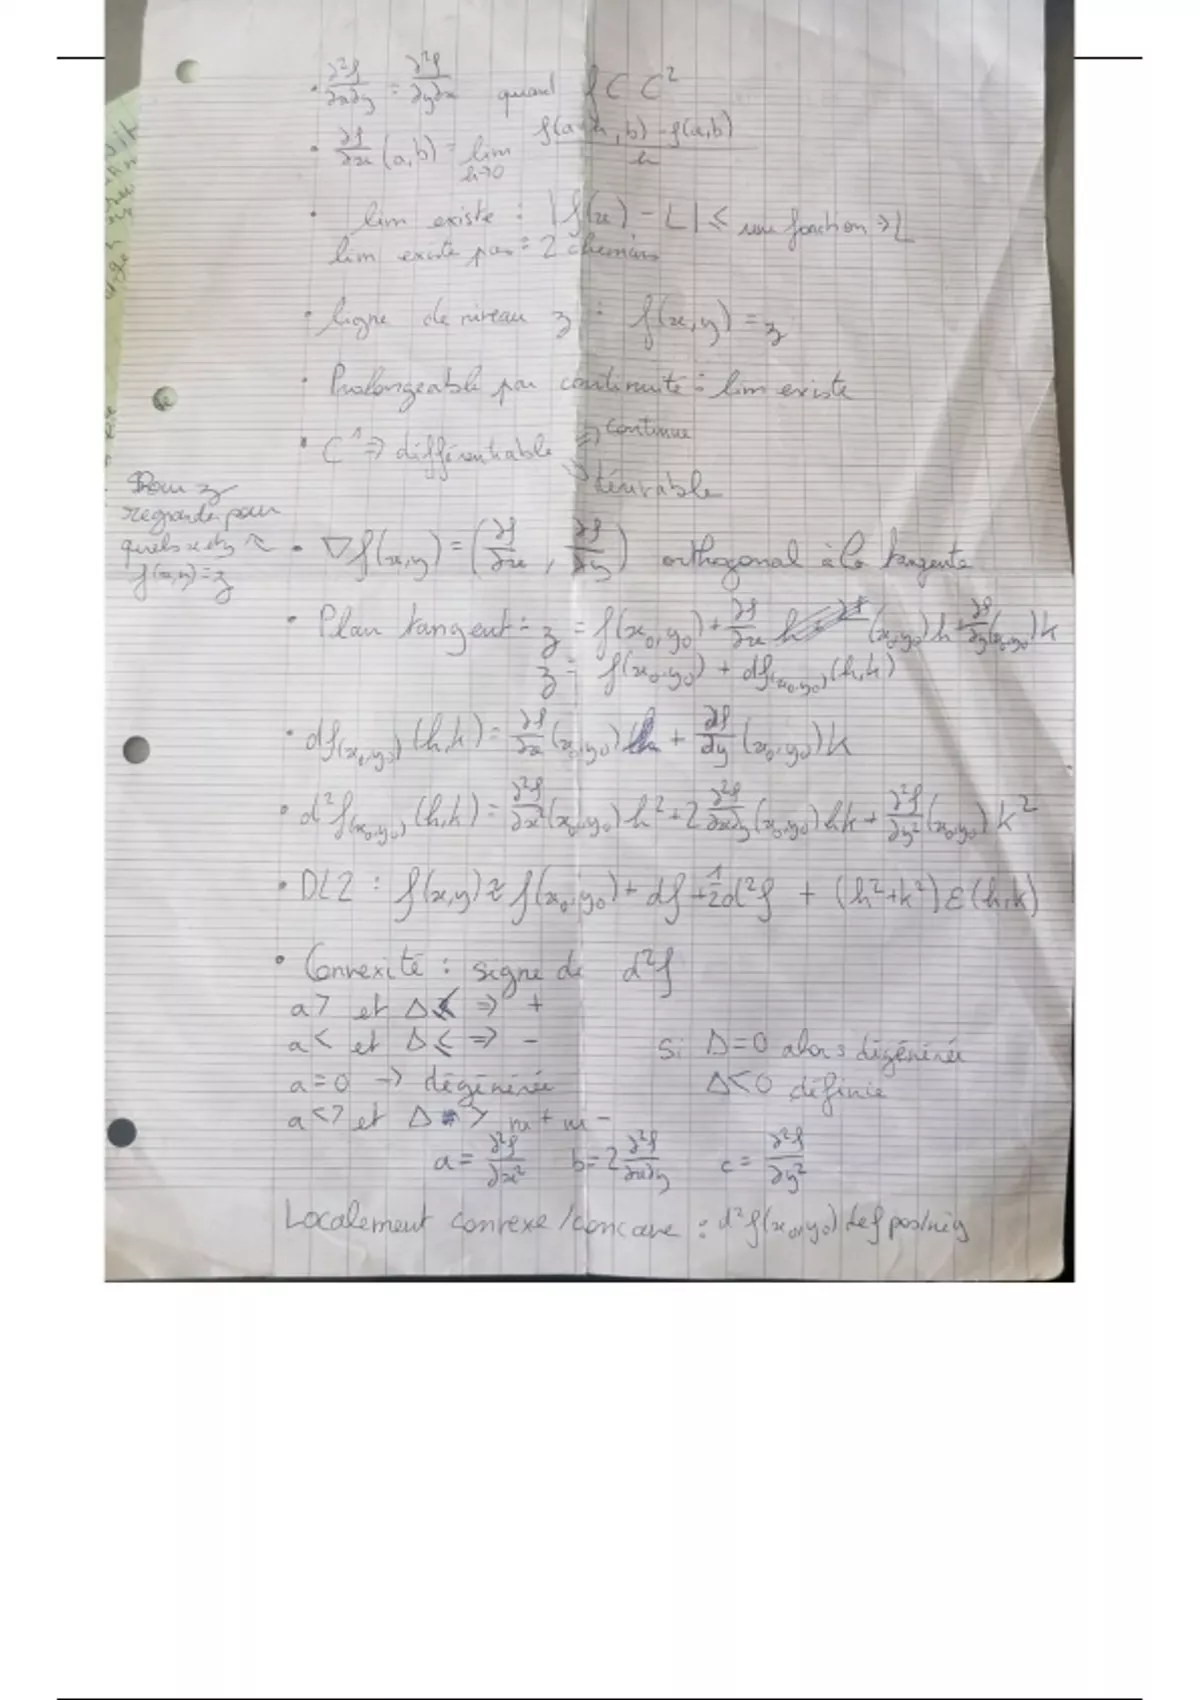 • ∂²f/∂x∂y = ∂²f/∂y∂x quand f C C²
• ∂f/∂x (a,b) = lim h→0 f(a+h, b) - f(a,b) / h
• lim existe : |f(x) - L| ≤ une fonction → L
lim existe pas = 2 chemins
• ligne de niveau z : f(x,y) = z
• Prolongeable par continuité : lim existe
• C¹ ⇒ différentiable ⇒ continue
⇒ dérivable
Pour z
regarder pour
quels x et y
f(x,y) = z
• ∇f(x,y) = (∂f/∂x , ∂f/∂y) orthogonal à la tangente
• Plan tangent : z = f(x₀,y₀) + ∂f/∂x (x₀,y₀) h + ∂f/∂y (x₀,y₀) k
z = f(x₀,y₀) + df(x₀,y₀) (h,k)
• df(x₀,y₀) (h,k) = ∂f/∂x (x₀,y₀) h + ∂f/∂y (x₀,y₀) k
• d²f(x₀,y₀) (h,k) = ∂²f/∂x² (x₀,y₀) h² + 2 ∂²f/∂x∂y (x₀,y₀) hk + ∂²f/∂y² (x₀,y₀) k²
• DL2 : f(x,y) ≈ f(x₀,y₀) + df + 1/2 d²f + (h²+k²) ε(h,k)
• Convexité : signe de d²f
a> et Δ≤ ⇒ +
a< et Δ≤ ⇒ - Si Δ=0 alors dégénérée
a=0 → dégénérée Δ<0 définie
a<> et Δ > m+ m-
a = ∂²f/∂x² b = 2 ∂²f/∂x∂y c = ∂²f/∂y²
Localement convexe/concave : d²f(x₀,y₀) def pos/nég